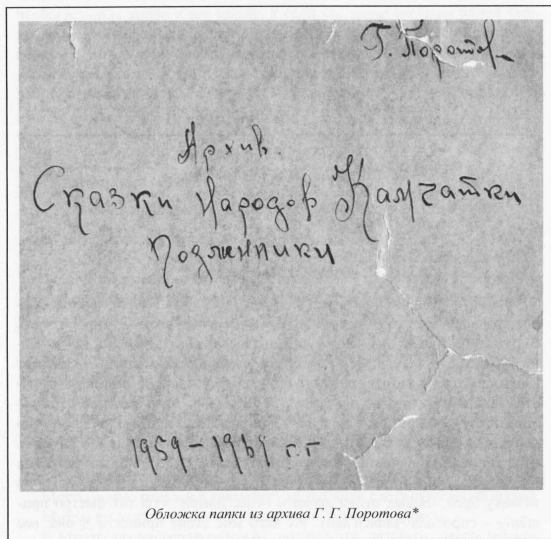 Г. Поротов
Архив.
Сказки Народов Камчатки
Подлинники
1959-1969 г.г
Обложка папки из архива Г. Г. Поротова*